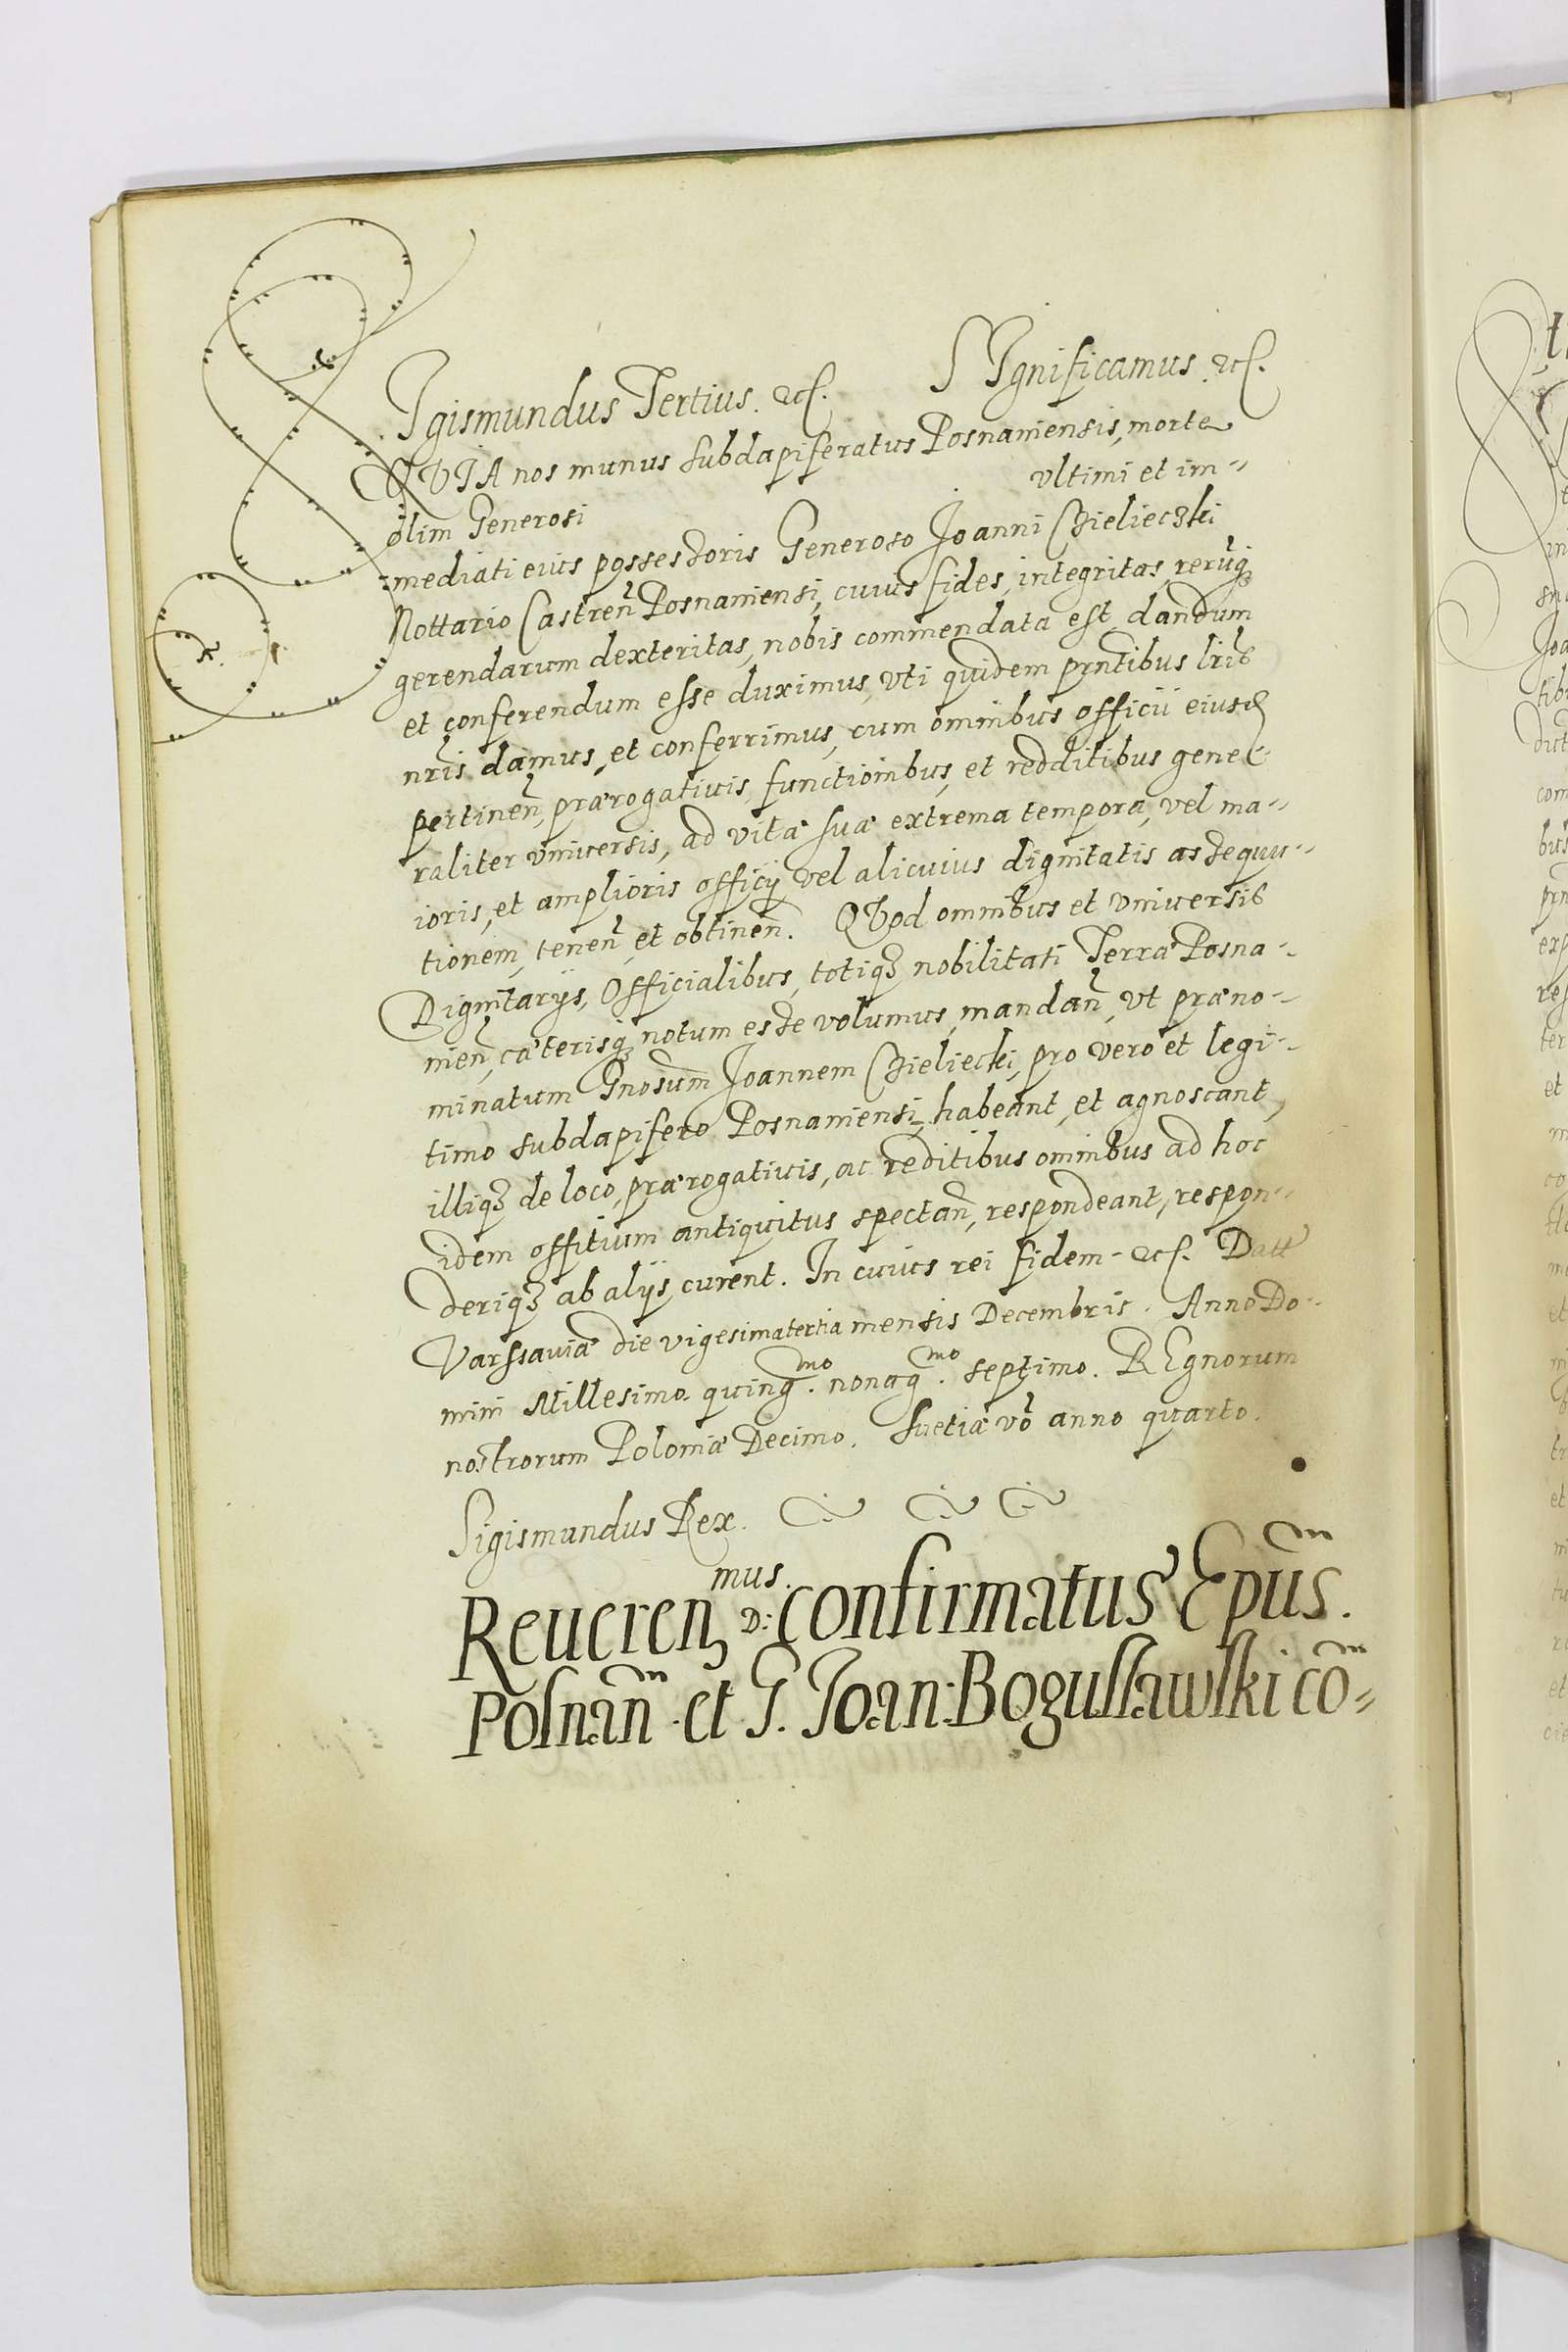 SIgismundus Tertius. etc. SIgnificamus. etc.
QVIA nos munus subdapiferatus Posnaniensis, morte
olim Generosi vltimi et im-
mediati eius possessoris Generoso Joanni Bielieczki
Nottario Castren̄ Posnaniensi, cuius fides, integritas, rerūq3
gerendarum dexteritas, nobis commendata est, dandum
et conferendum esse duximus, vti quidem prntibus lris
nr̄is damus, et conferrimus, cum omnibus officii eiusd
pertinen̄, prærogatiuis, functionibus, et redditibus gene-
raliter vniuersis, ad vitæ suæ extrema tempora, vel ma-
ioris, et amplioris officij vel alicuius dignitatis assequu-
tionem, tenen̄, et obtinen̄. QVod omnibus et vniuersis
Dignitarijs, Officialibus, totiq3 nobilitati Terræ Posna-
nien̄, cæterisq3 notum esse volumus, mandan̄, vt præno-
minatum Gnosum Joannem Bieliecki, pro vero et legi-
timo subdapifero Posnaniensi, habeant, et agnoscant,
illiq3 de loco, prærogatiuis, ac reditibus omnibus ad hoc
idem offitium antiquitus spectan̄, respondeant, respon-
deriq3 ab alijs curent. In cuius rei fidem - etc. Datt
Varssauiæ die vigesimatertia mensis Decembris. Anno Do-
mini Millesimo. quinq.mo nonag.mo septimo. REgnorum
nostrorum Poloniæ Decimo. Suetiæ vō anno quarto.
Sigismundus Rex.
Reueren mus. D: confirmatus Epūs.
Posnan̄ et G. Joan: Boguslawski cō-